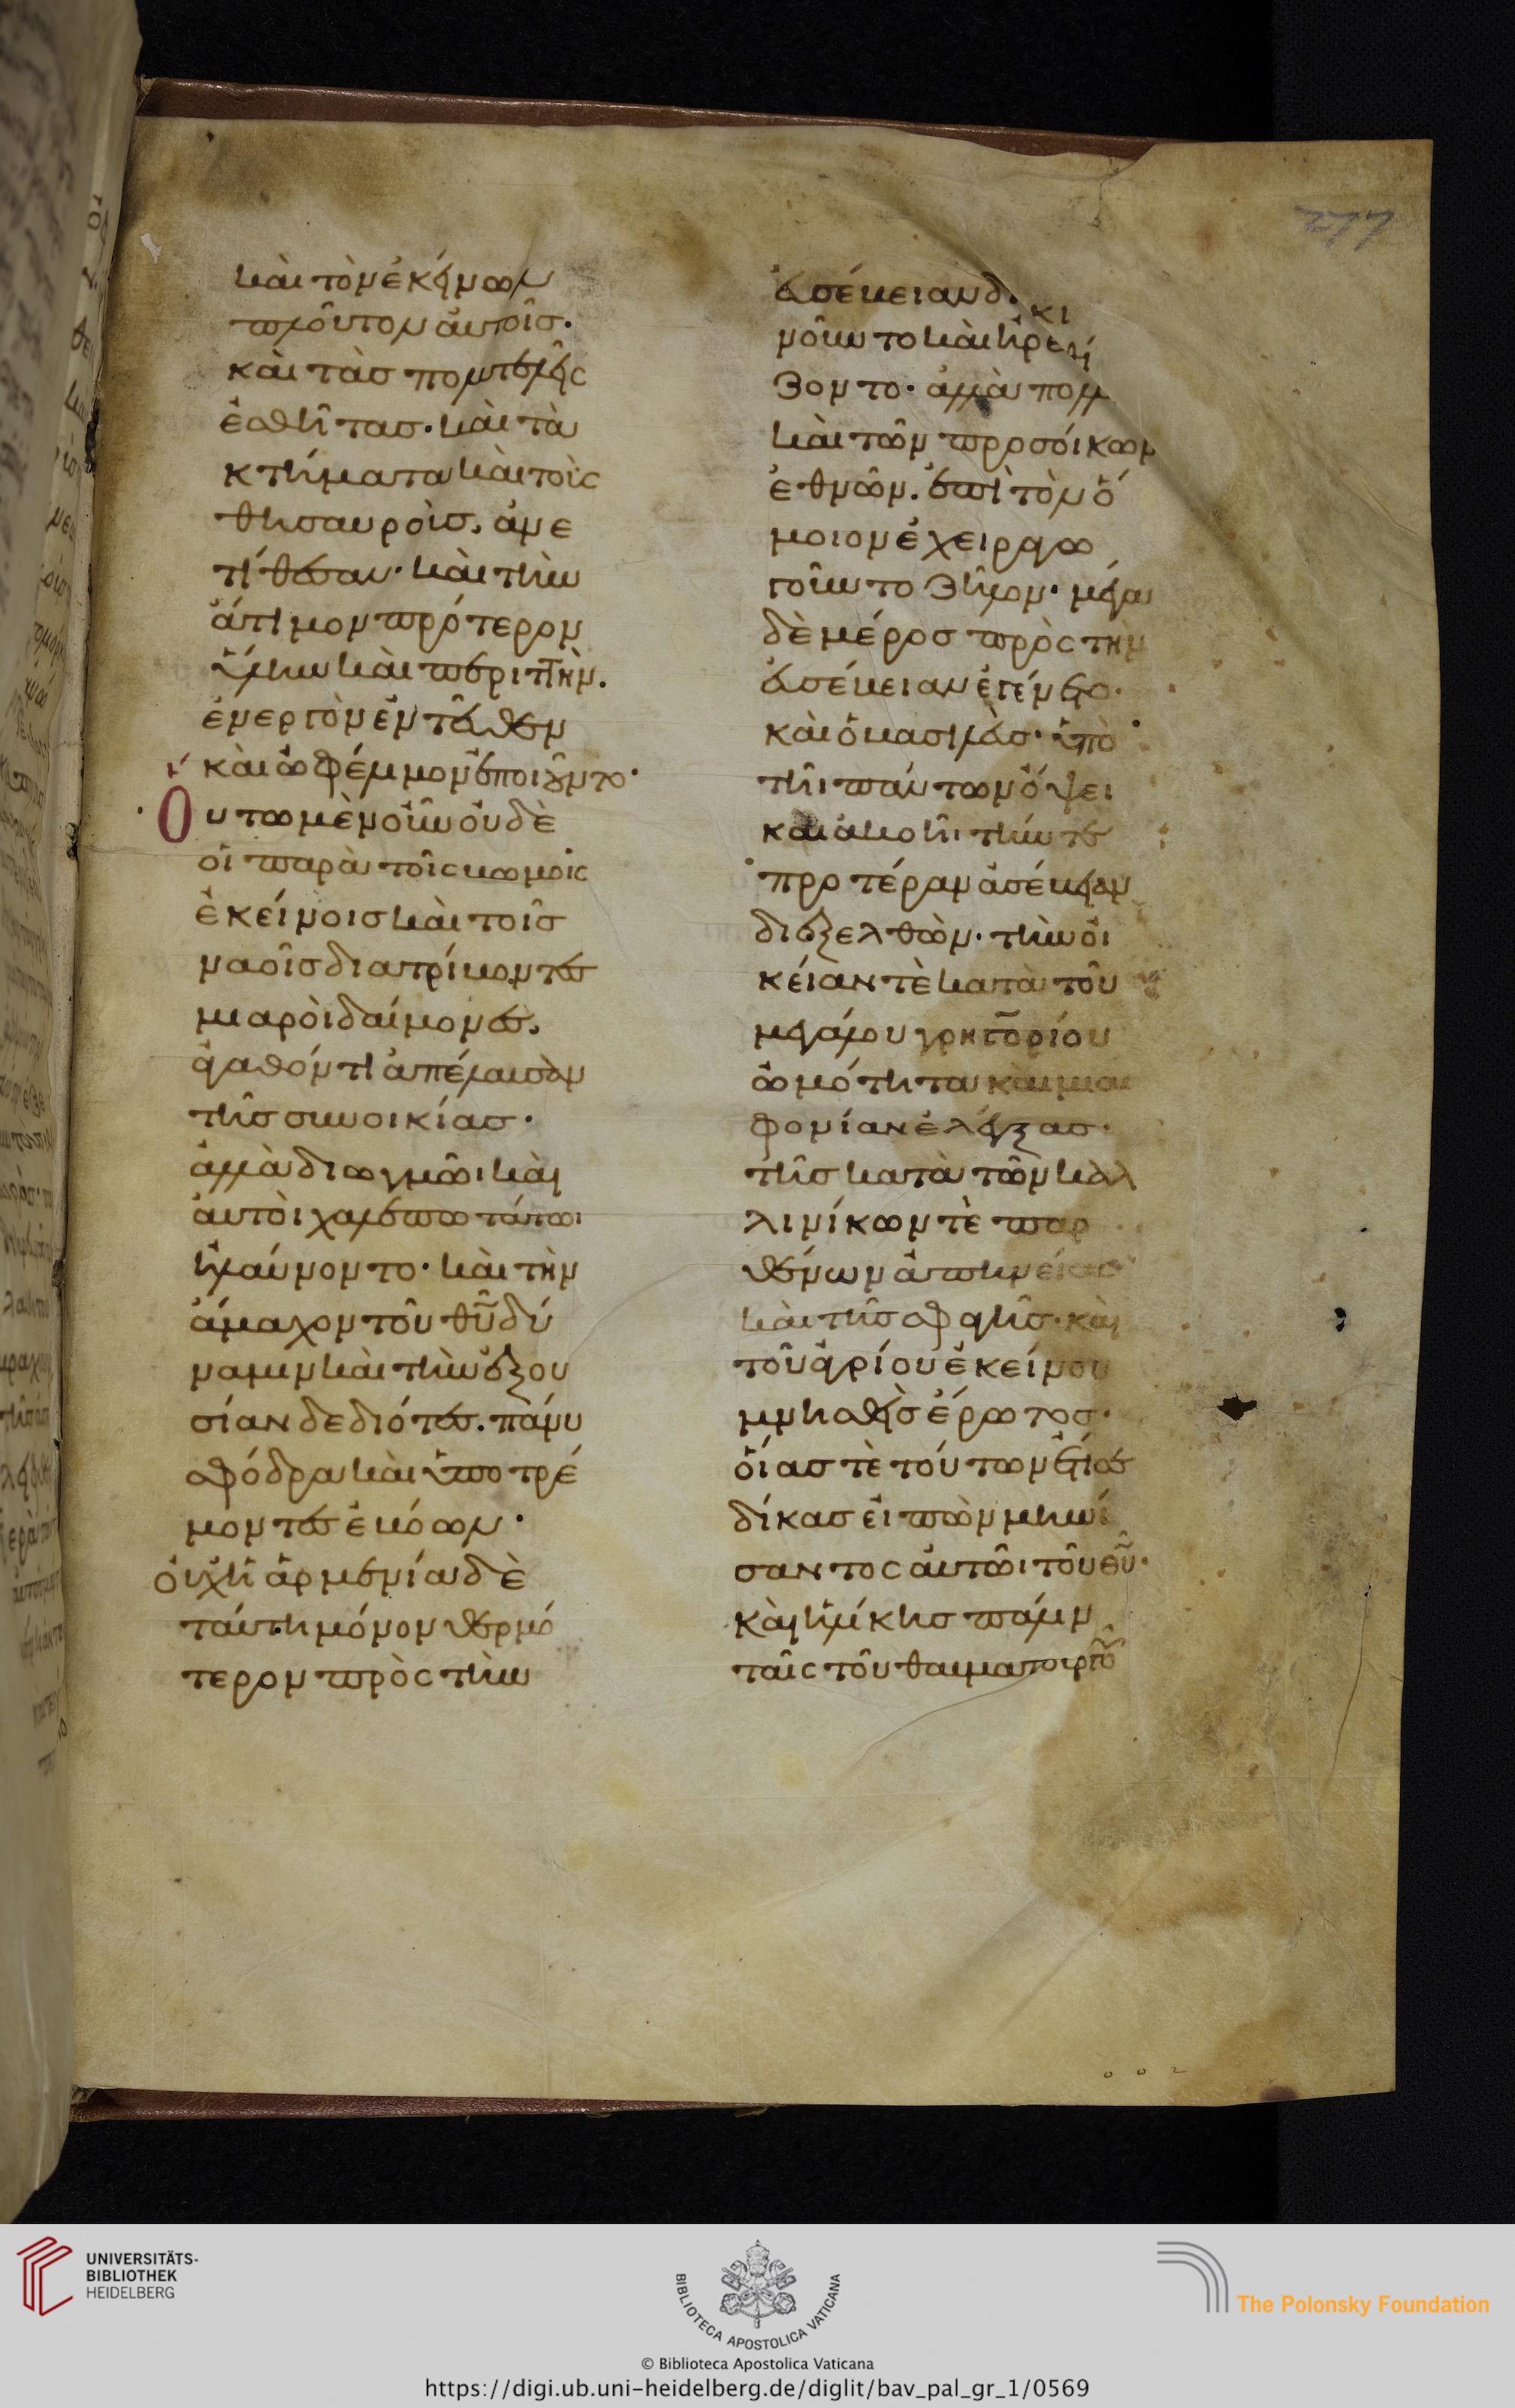 καὶ τὸν ἐκείνων
πλοῦτον αὐτοῖσ.
καὶ τὰσ πολυτελεῖς
ἐσθῆτασ· καὶ τὰ
κτήματα καὶ τοὶς
θησαυροὶσ, ἀνε
τίθεσαν· καὶ τὴν
ἄτιμον πρότερον
ὕλην καὶ περιττὴν.
ἐνεργὸν ἐνταῦθεν
καὶ ὠφέλιμον ἐποιοῦντο·
Ουτω μὲν οὖν οὐδὲ
οἱ παρὰ τοῖς βωμοῖς
ἐκείνοισ καὶ τοῖσ
ναοῖσ διατρίβοντεσ
μιαροὶ δαίμονεσ.
ἀγαθόν τι ἀπέλαυσαν
τῆσ συνοικίασ·
ἀλλὰ διωγμῶι καὶ
αὐτοὶ χαλεπωτάτωι
ἠλαύνοντο· καὶ τὴν
ἄμαχον τοῦ θῦ δύ
ναμιν καὶ τὴν ἐξου
σίαν δεδιότεσ. πάνυ
σφόδρα καὶ ὑποτρέ
μοντεσ ἐβόων·
οὐχ ἡ ἀρμενία δὲ
ταύτη μόνον θερμό
τερον πρὸς τὴν
ἀσέβειαν
νοῦν το καὶ ἠρε
ζοντο· ἀλλὰ πολλ
καὶ τῶν προσοίκων
ἐθνῶν. ἐπὶ τὸν ὅ
μοιον ἐχειραγω
γοῦντο ζῆλον· μέγα
δὲ μέροσ πρὸς τὴν
ἀσέβειαν ἐγένετο·
καὶ ὁ βασιλεὺσ· ὑπὸ
τῆι πάντων ὄψει
καὶ ἀκοῆι τήν τε
προτέραν ἀσέβειαν
διεξελθὼν· τὴν οἰ
κείαν τὲ κατὰ τοῦ
μεγάλου γρηγορίου
ὠμότητα καὶ μιαι
φονίαν ἐλέγξασ·
τῆσ κατὰ τῶν καλ
λινίκων τὲ παρ
θένων ἀπηνείασ
καὶ τῆσ σφαγῆσ· καὶ
τοῦ ἀγρίου ἐκείνου
μνησθεὶσ ἔρωτοσ·
οἵασ τὲ τούτων ἔτισε
δίκασ εἰπὼν μηνί
σαντος αὐτῶι τοῦ θῦ·
καὶ ἡλίκησ πάλιν
ταῖς τοῦ θαυματουργοῦ
UNIVERSITÄTS-
BIBLIOTHEK
HEIDELBERG
BIBLIOTECA APOSTOLICA VATICANA
The Polonsky Foundation
© Biblioteca Apostolica Vaticana
https://digi.ub.uni-heidelberg.de/diglit/bav_pal_gr_1/0569